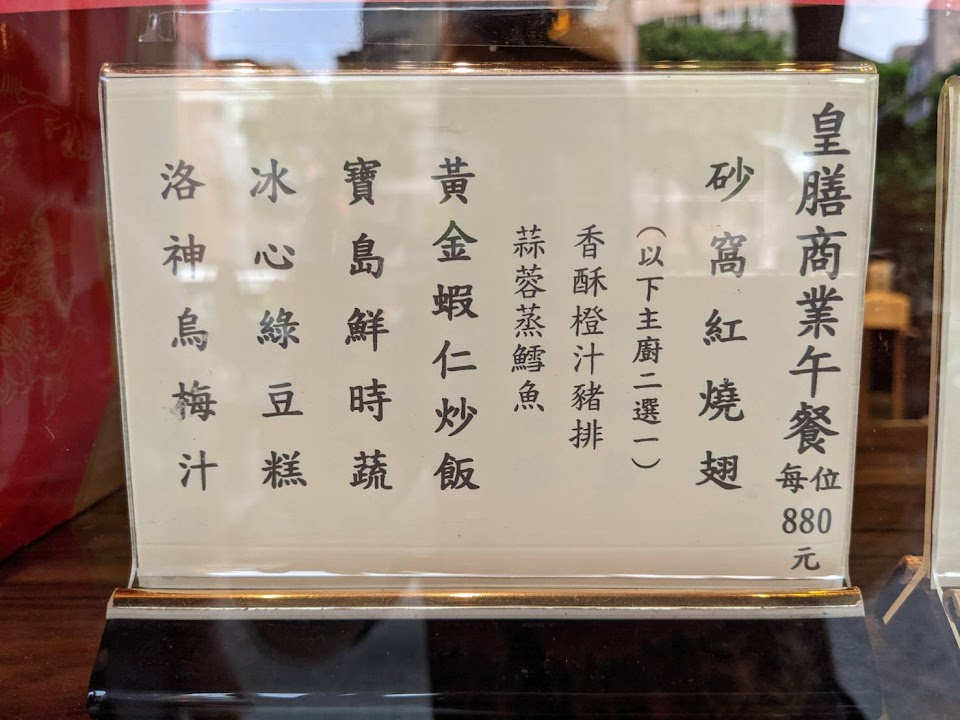 皇膳商業午餐每位880元
砂窩紅燒翅
（以下主廚二選一）
香酥橙汁豬排
蒜蓉蒸鱈魚
黃金蝦仁炒飯
寶島鮮時蔬
冰心綠豆糕
洛神烏梅汁